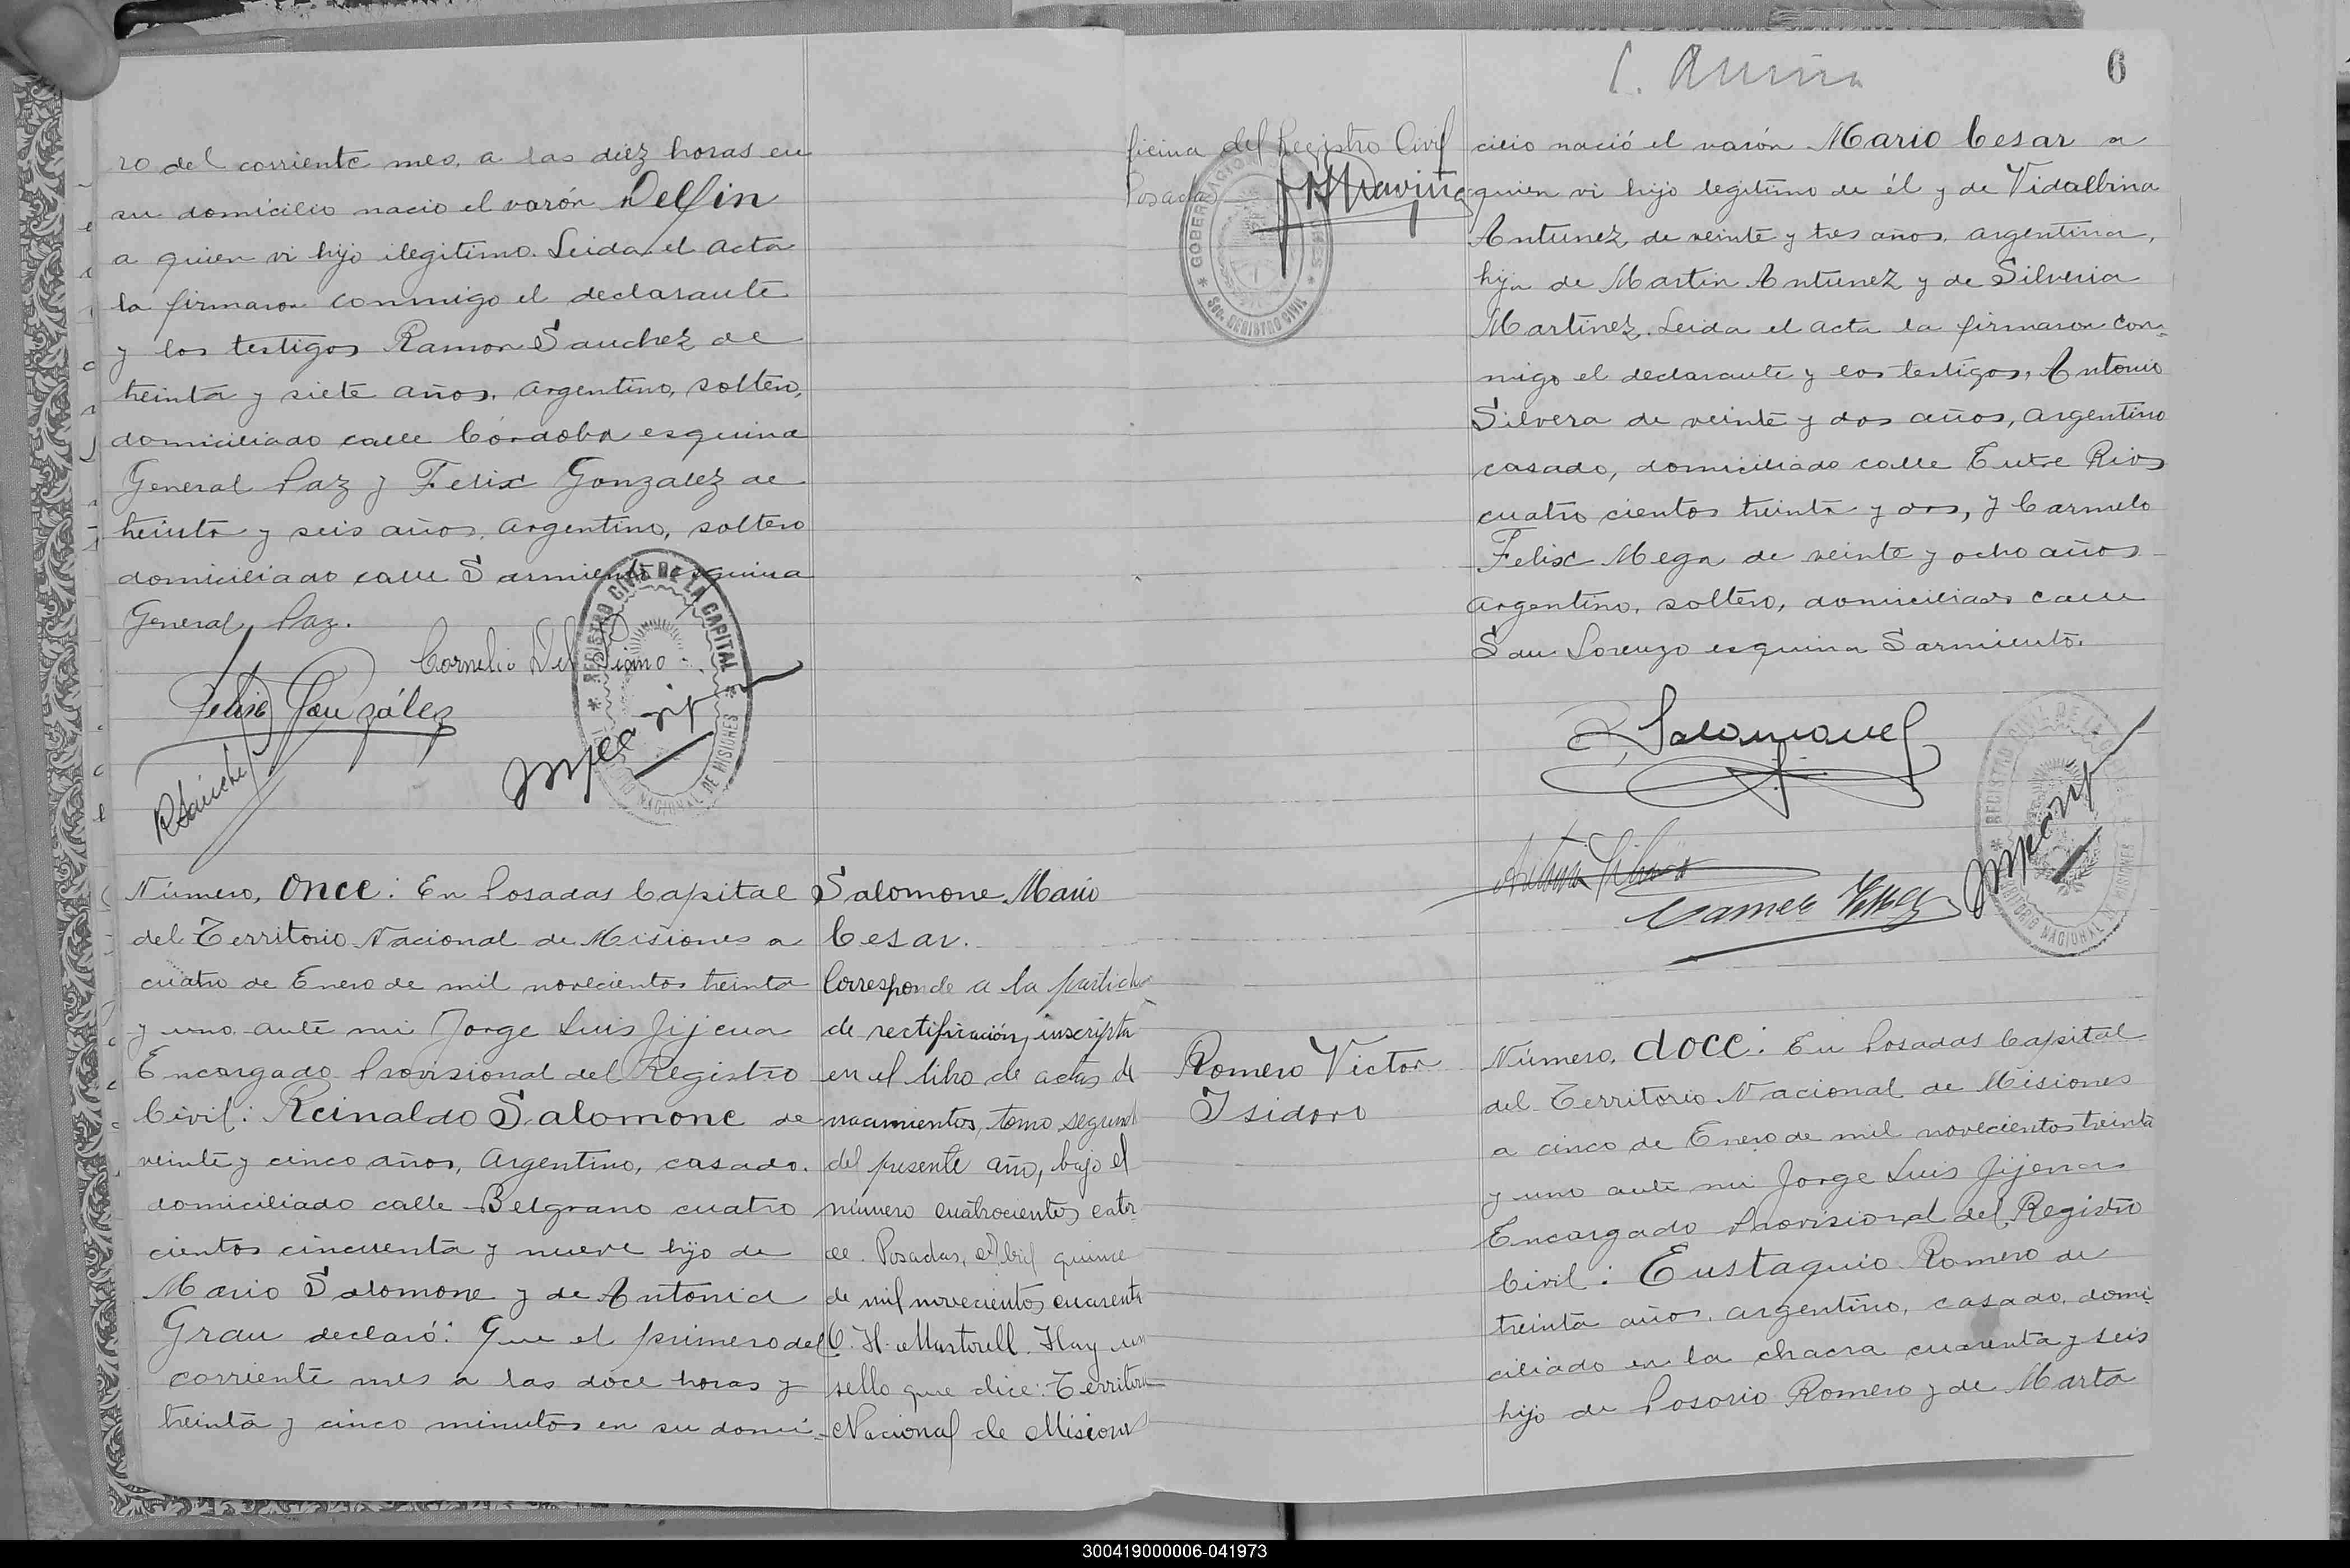 ro del corriente mes, a las diez horas en
su domicilio nacio el varón Delfin
a quien vi hijo ilegitimo. Leida el acta
la firmaron conmigo el declarante
y los testigos Ramon Sanchez de
treinta y siete años, argentino, soltero,
domiciliado calle Córdoba esquina
General Paz y Felix Gonzalez de
treinta y seis años, argentino, soltero
domiciliado calle Sarmiento esquina
General Paz.
Cornelio Del
Felix González
RSanchez
REGISTRO CIVIL DE LA CAPITAL
NACIONAL DE MISIONES
Número, once: En Posadas Capital
del Territorio Nacional de Misiones a
cuatro de Enero de mil novecientos treinta
y uno ante mi Jorge Luis Jijena
Encargado Provisional del Registro
Civil: Reinaldo Salomone de
veinte y cinco años, Argentino, casado,
domiciliado calle Belgrano cuatro
cientos cincuenta y nueve hijo de
Mario Salomone y de Antonia
Grau declaró: Que el primero del
corriente mes a las doce horas y
treinta y cinco minutos en su domi-
Salomone Mario
Cesar.
Corresponde a la partida
de rectificación, inscripta
en el libro de actas de
nacimientos, tomo segundo
del presente año, bajo el
número cuatrocientos cator-
ce. Posadas, Abril quince
de mil novecientos cuarenta
C. H. Martorell. Hay un
sello que dice: Territorio
Nacional de Misiones
ficina del Registro Civil
Posadas
GOBERNACION
SEC. REGISTRO CIVIL
6
cilio nació el varón Mario Cesar a
quien vi hijo legitimo de él y de Vidalbina
Antunez, de veinte y tres años, argentina,
hija de Martin Antunez y de Silveria
Martinez. Leida el acta la firmaron con-
migo el declarante y los testigos, Antonio
Silvera de veinte y dos años, argentino
casado, domiciliado calle Entre Rios
cuatro cientos treinta y dos, y Carmelo
Felix Mega de veinte y ocho años
argentino, soltero, domiciliado calle
San Lorenzo esquina Sarmiento.
R Salomone
REGISTRO CIVIL DE LA
TERRITORIO NACIONAL DE MISIONES
Romero Victor
Isidoro
Número, doce: En Posadas Capital
del Territorio Nacional de Misiones
a cinco de Enero de mil novecientos treinta
y uno ante mi Jorge Luis Jijena
Encargado Provisional del Registro
Civil: Eustaquio Romero de
treinta años, argentino, casado, domi-
ciliado en la chacra cuarenta y seis
hijo de Posorio Romero y de Marta
300419000006-041973